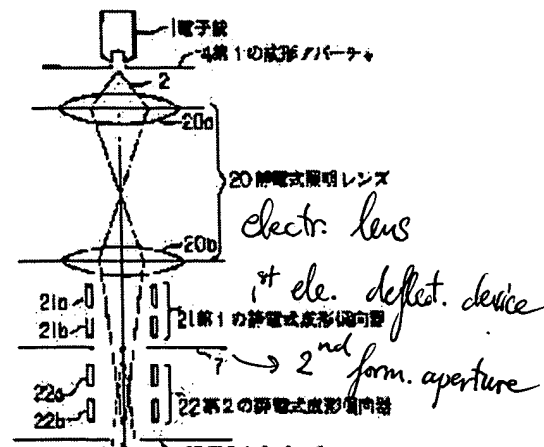 1電子銃
4第1の成形アパーチャ
2
20a
20静電式照明レンズ
electr. lens
20b
1st ele. deflect. device
21a
21b
21第1の静電式成形偏向器
7
→ 2nd form. aperture
22a
22b
22第2の静電式成形偏向器